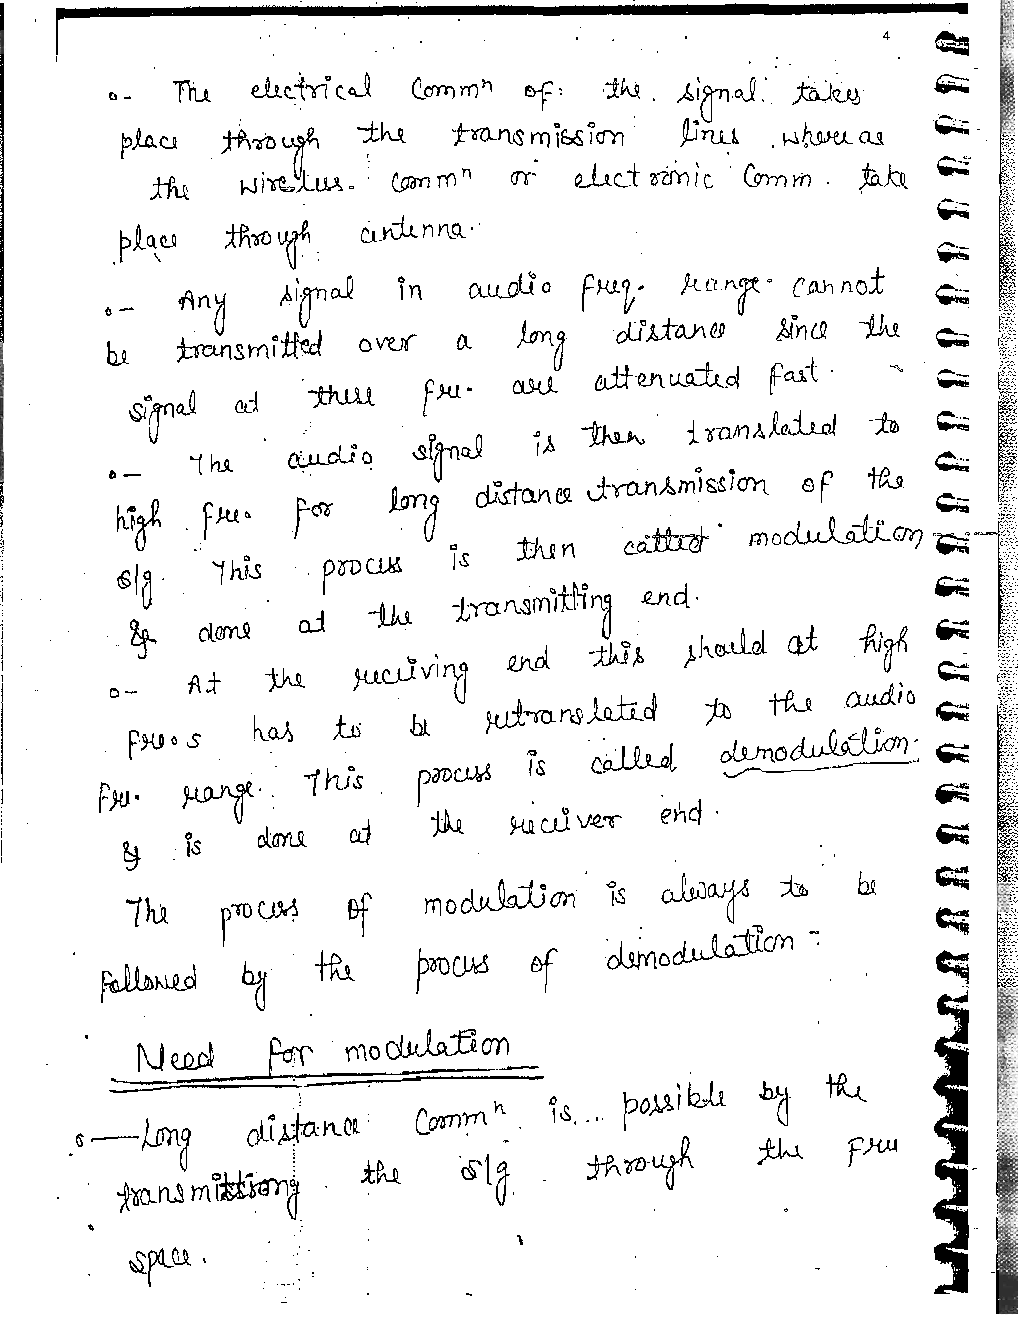 4
o- The electrical Commⁿ of the signal takes
place through the transmission lines whereas
the wireless commⁿ or electronic Comm. take
place through antenna.
o- Any signal in audio freq. range cannot
be transmitted over a long distance since the
signal at these fre. are attenuated fast.
o- The audio signal is then translated to
high fre. for long distance transmission of the
s/g. This process is then called modulation
& done at the transmitting end.
o- At the receiving end this should at high
fre.s has to be retranslated to the audio
fre. range. This process is called demodulation.
& is done at the receiver end.
The process of modulation is always to be
followed by the process of demodulation.
Need for modulation
o- Long distance Commⁿ is possible by the
transmitting the s/g through the free
space.